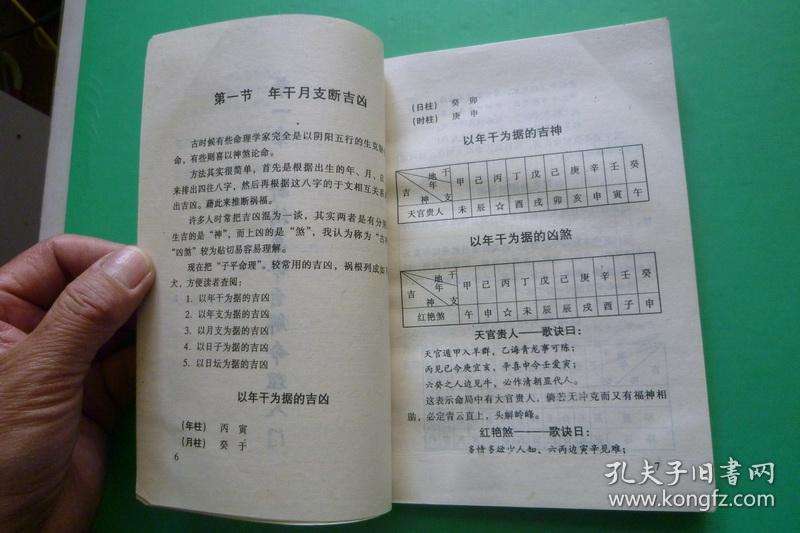 第一节 年干月支断吉凶
古时候有些命理学家完全是以阴阳五行的生克
命,有些则喜以神煞论命。
方法其实很简单,首先是根据出生的年、月、
来排出四往八字,然后再根据这八个字的于文相互关
出吉凶。藉此来推断祸福。
许多人时常把吉凶混为一谈,其实两者是有分
生吉的是“神”,而上凶的是“煞”,我认为称为“吉
“凶煞”较为贴切易容易理解。
现在把“子平命理”。较常用的吉凶,祸根列成如
犬,方便读者查阅:
1. 以年干为据的吉凶
2. 以年支为据的吉凶
3. 以月支为据的吉凶
4. 以日子为据的吉凶
5. 以日坛为据的吉凶
以年干为据的吉凶
(年柱) 丙 寅
(月柱) 癸 于
6
(日柱) 癸 卯
(时柱) 庚 申
以年干为据的吉神
吉 神 年 地 干 支 甲 己 丙 丁 戊 己 庚 辛 壬 癸
天官贵人 未 辰 ☆ 酉 戌 卯 亥 申 寅 午
以年干为据的凶煞
吉 神 年 地 干 支 甲 己 丙 丁 戊 己 庚 辛 壬 癸
红艳煞 午 申 ☆ 未 辰 辰 戌 酉 子 申
天官贵人——歌诀曰:
天官遁甲入羊群,乙诲青龙事可陈;
丙见已今庚宜亥,辛喜中今壬爱寅;
六癸之人边见牛,必作清朝显代人。
这表示命局中有大官贵人,倘若无冲克而又有福神相
助,必定青云直上,头解岭峰。
红艳煞——歌诀曰:
多情多嫂少人知、六两边寅辛见难;
7
孔夫子旧書网
www.kongfz.com